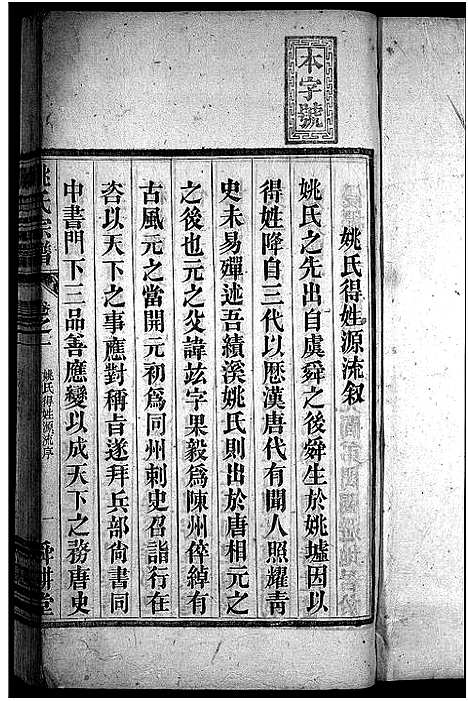 本字號
姚氏得姓源流叙
姚氏之先出自虞舜之後舜生於姚墟因以
得姓降自三代以曆漢唐代有聞人照耀青
史未易殫述吾績溪姚氏則出於唐相元之
之後也元之父諱玆字果毅爲陳州倅綽有
古風元之當開元初爲同州刺史召詣行在
咨以天下之事應對稱旨遂拜兵部尙書同
中書門下三品善應變以成天下之務唐史
姚氏宗譜
卷之一
姚氏得姓源流序
一
舜耕堂